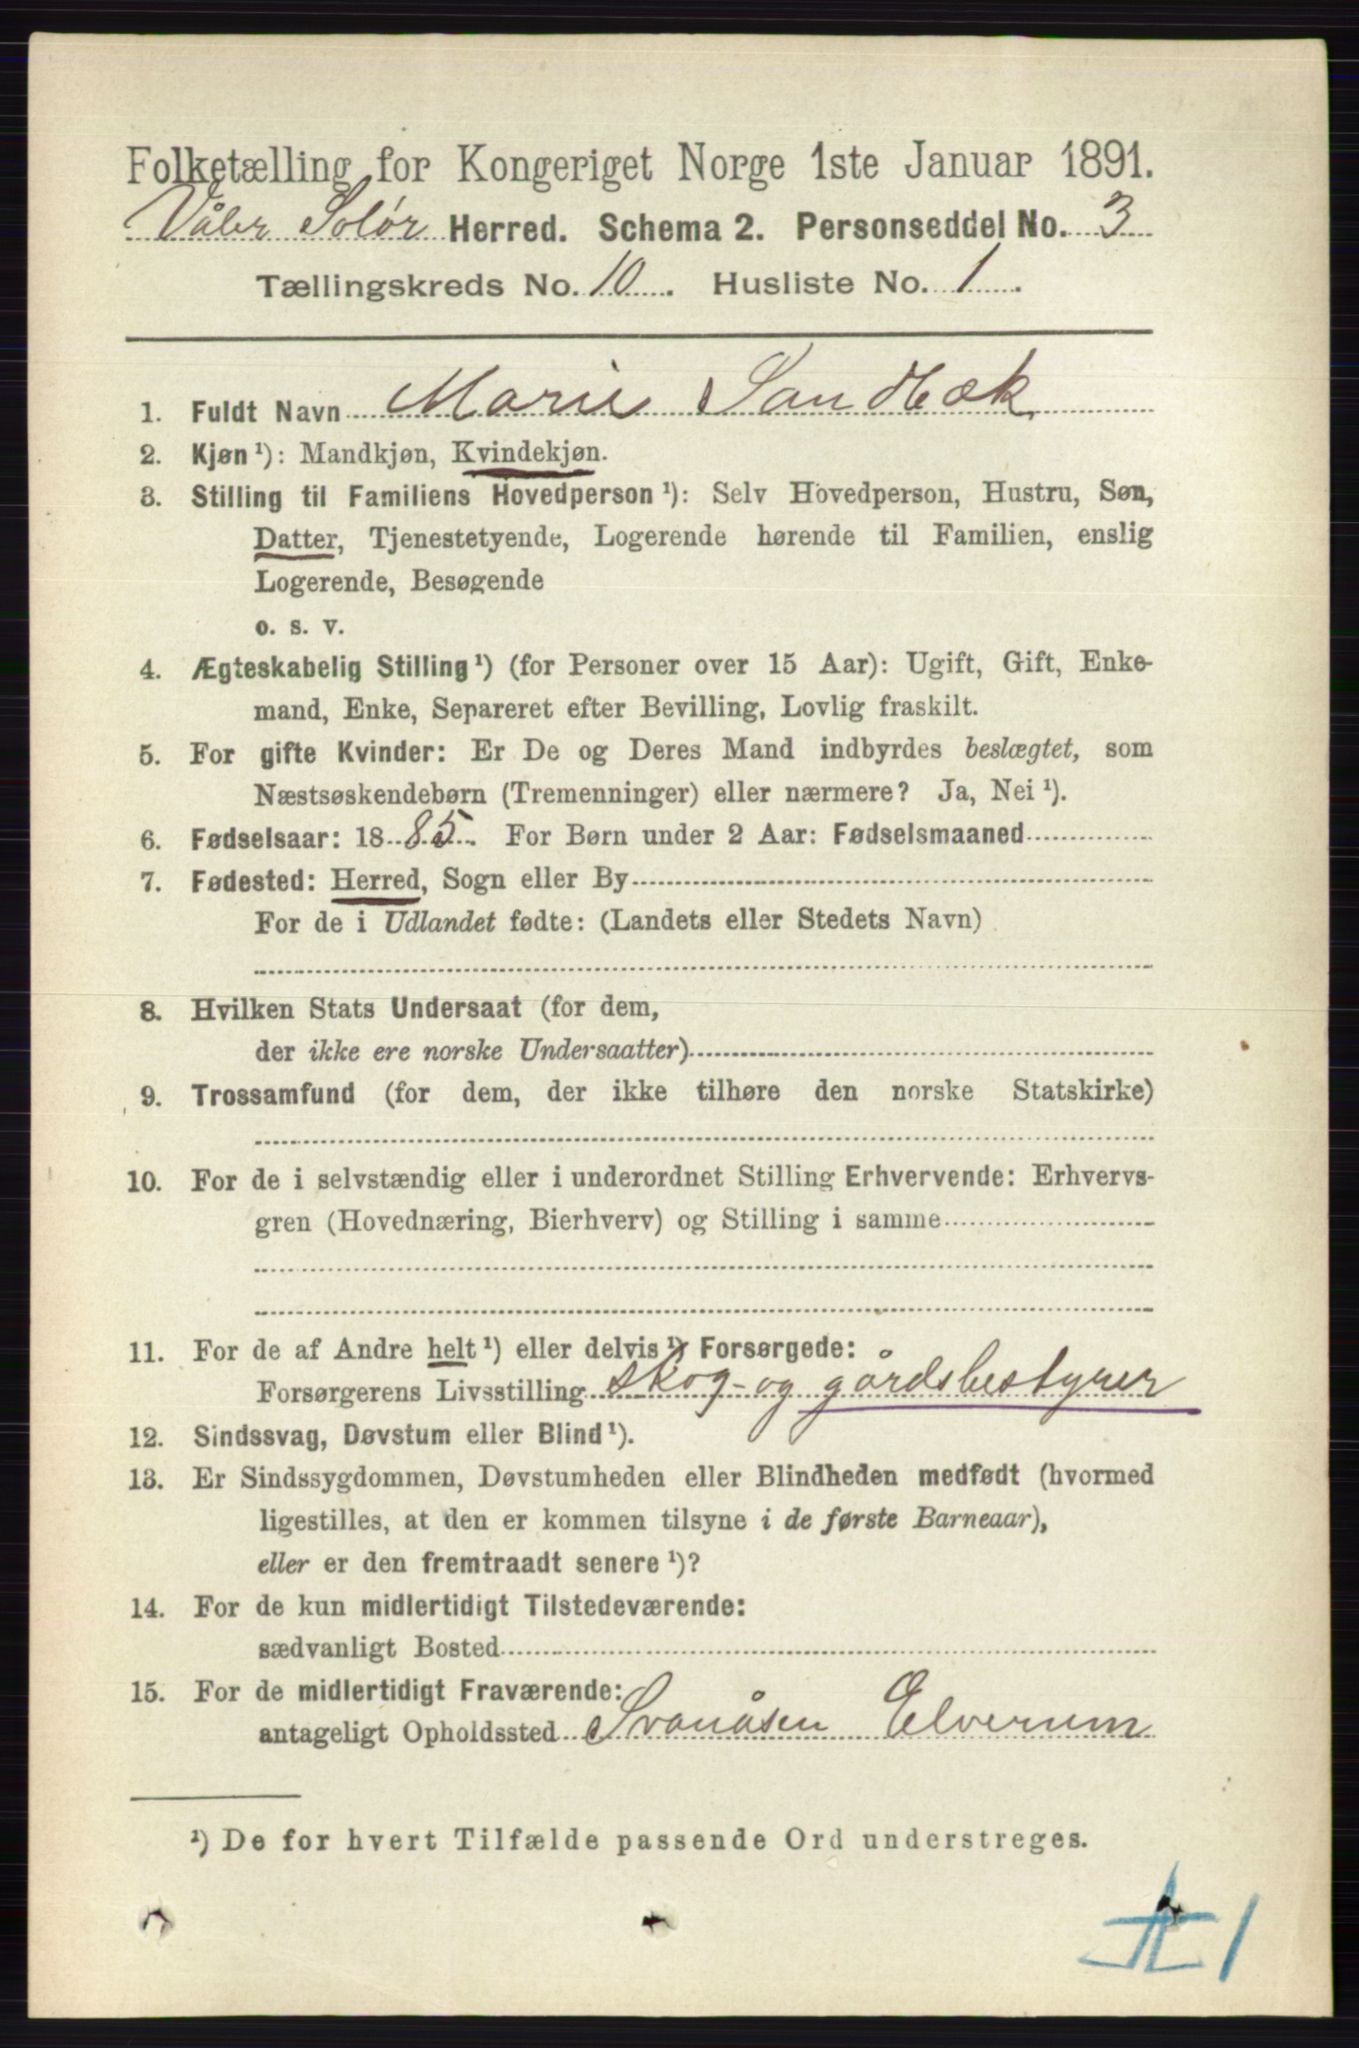 Folketælling for Kongeriget Norge 1ste Januar 1891.
Våler Solør Herred. Schema 2. Personseddel No. 3
Tællingskreds No. 10. Husliste No. 1.
1. Fuldt Navn Marie Sandbæk
2. Kjøn ¹): Mandkjøn, Kvindekjøn.
3. Stilling til Familiens Hovedperson ¹): Selv Hovedperson, Hustru, Søn,
Datter, Tjenestetyende, Logerende hørende til Familien, enslig
Logerende, Besøgende
o. s. v.
4. Ægteskabelig Stilling ¹) (for Personer over 15 Aar): Ugift, Gift, Enke-
mand, Enke, Separeret efter Bevilling, Lovlig fraskilt.
5. For gifte Kvinder: Er De og Deres Mand indbyrdes beslægtet, som
Næstsøskendebørn (Tremenninger) eller nærmere? Ja, Nei ¹).
6. Fødselsaar: 1885. For Børn under 2 Aar: Fødselsmaaned
7. Fødested: Herred, Sogn eller By
For de i Udlandet fødte: (Landets eller Stedets Navn)
8. Hvilken Stats Undersaat (for dem,
der ikke ere norske Undersaatter)
9. Trossamfund (for dem, der ikke tilhøre den norske Statskirke)
10. For de i selvstændig eller i underordnet Stilling Erhvervende: Erhvervs-
gren (Hovednæring, Bierhverv) og Stilling i samme
11. For de af Andre helt ¹) eller delvis ¹) Forsørgede:
Forsørgerens Livsstilling skog- og gårdsbestyrer
12. Sindssvag, Døvstum eller Blind ¹).
13. Er Sindssygdommen, Døvstumheden eller Blindheden medfødt (hvormed
ligestilles, at den er kommen tilsyne i de første Barneaar),
eller er den fremtraadt senere ¹)?
14. For de kun midlertidigt Tilstedeværende:
sædvanligt Bosted
15. For de midlertidigt Fraværende:
antageligt Opholdssted Svanåsen Elverum
¹) De for hvert Tilfælde passende Ord understreges.